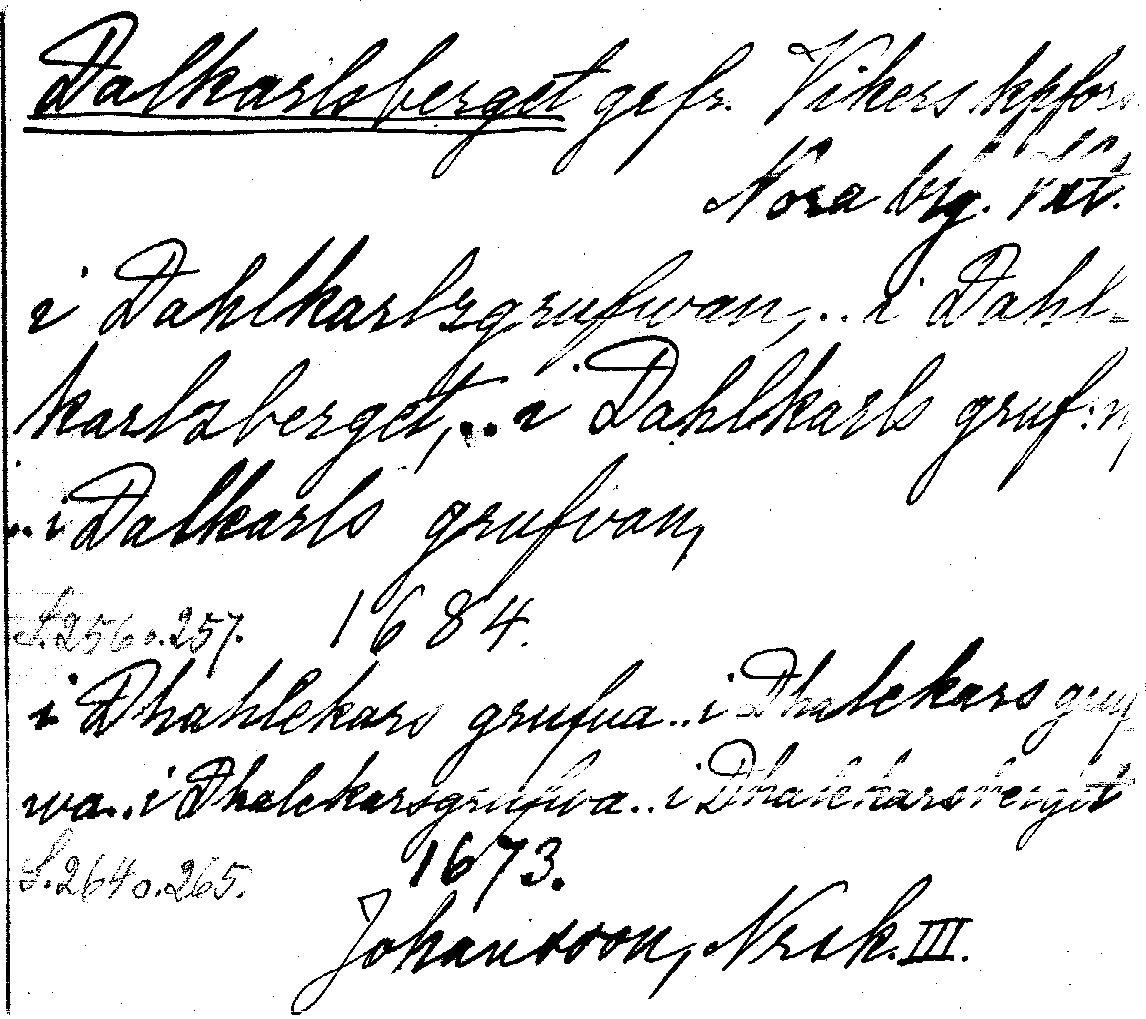 Dalkarlsberget gefr. Vikers kpförs
Nora brg. Vxt.
i Dahlkarlsgrufwan,.. i Dahl-
karlsberget,.. i Dahlkarls gruf:n,
.. i Dalkarls grufvan,
S. 256 o. 257. 1684.
i Dhahlekars grufva.. i Dhalekars gruf
wa.. i Dhalekarsgrufwa.. i Dhalekarsberget
S. 264 o. 265. 1673.
Johansson, Nrsk. III.